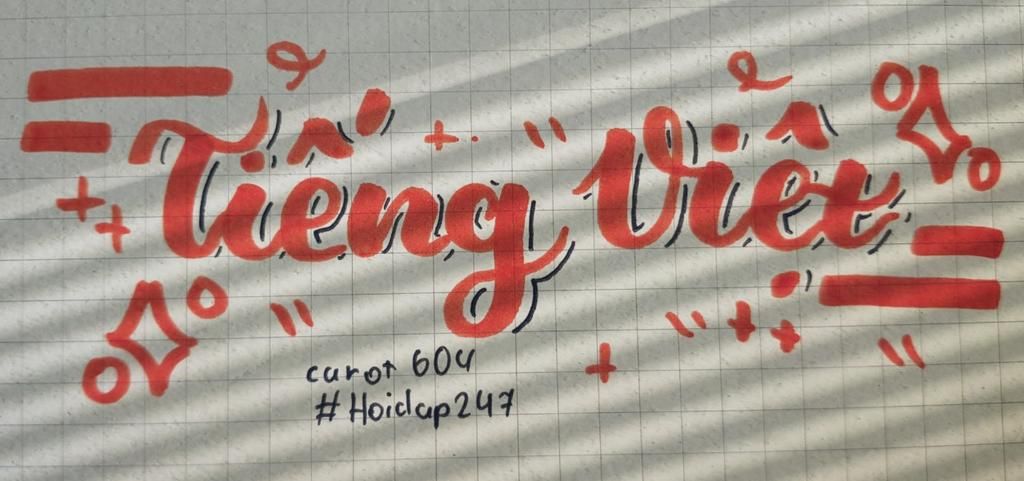 Tiếng Việt
carot 604
#Hoidap247